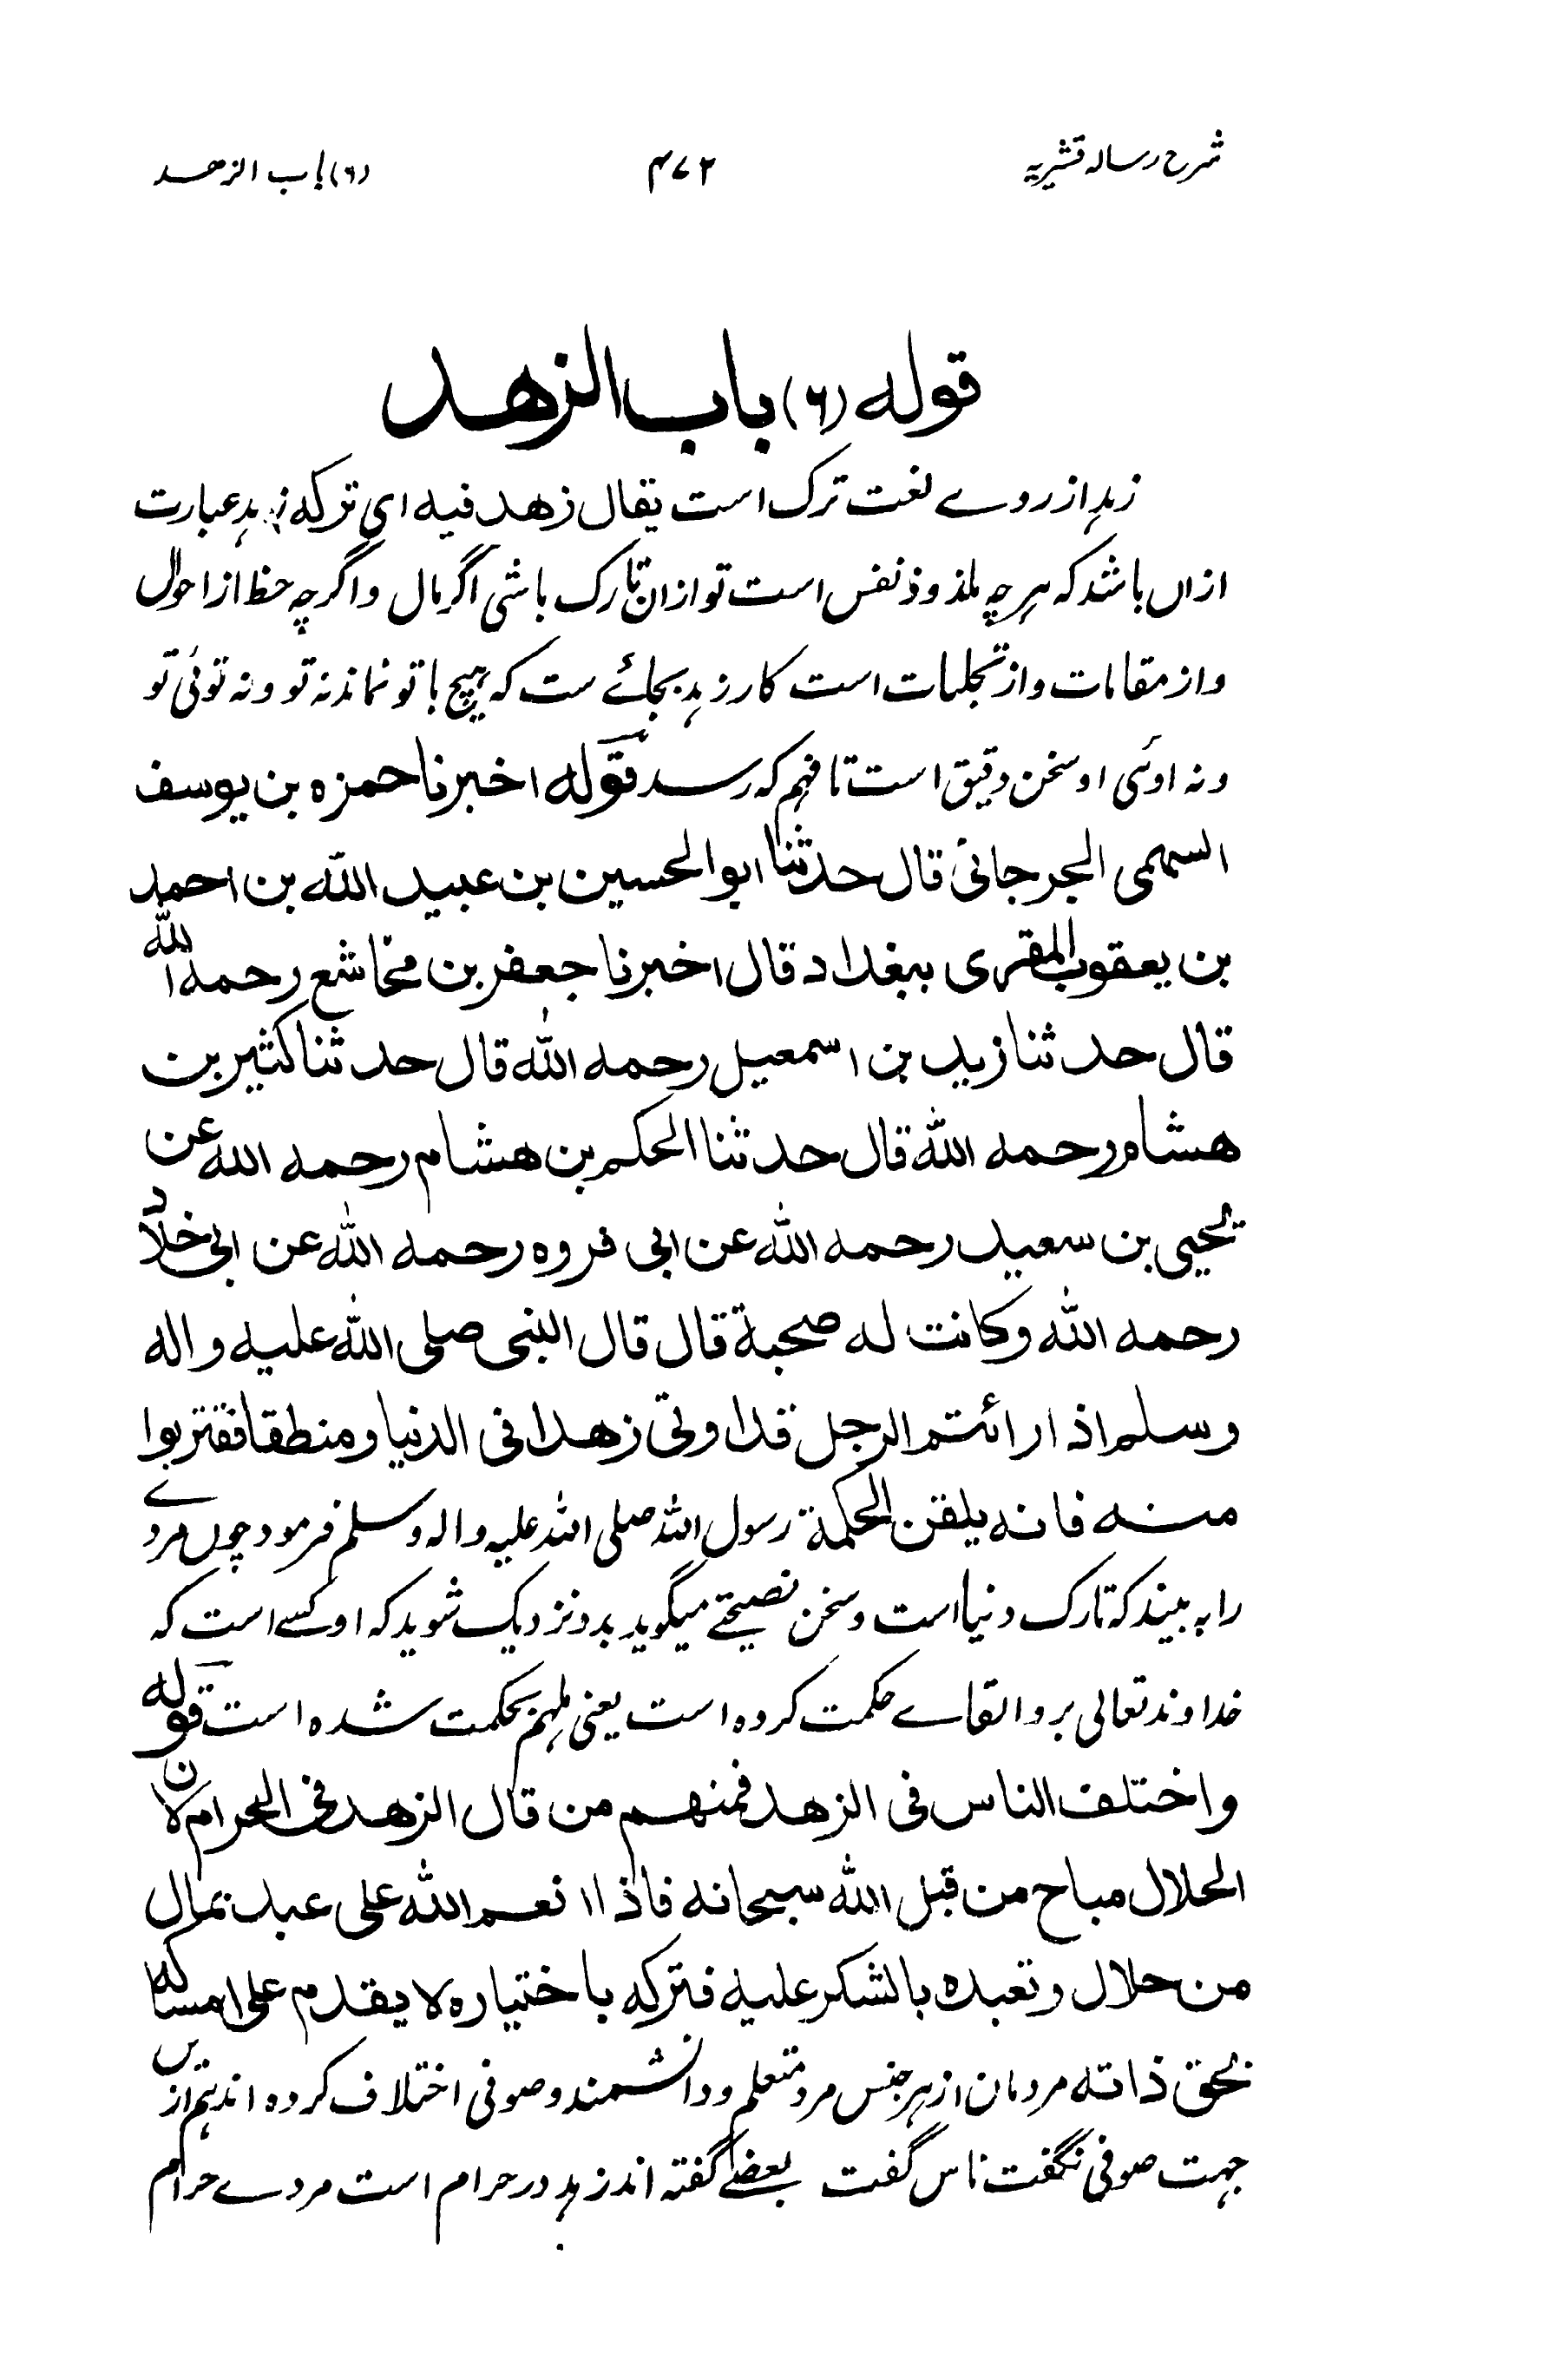 شرح رسالہ قشیریہ ۴۷۲ (۶) باب الزهد
قوله (۶) باب الزهد
زہد از روے لغت ترک است یقال زهد فیه ای ترکه زہد عبارت
ازاں باشد کہ ہرچہ ملذوذ نفس است تو ازان تارک باشی اگر مال و اگرچہ حظ از احوال
و از مقامات و از تجلیات است کار زہد بجائے ست کہ ہیچ با تو نماند نہ تو و نہ توئی تو
و نہ اوئی او سخن دقیق است تا فہم کہ رسد قوله اخبرنا حمزه بن یوسف
السهمی الجرجانی قال حدثنا ابوالحسین بن عبید الله بن احمد
بن یعقوب المقری ببغداد قال اخبرنا جعفر بن مجاشع رحمه الله
قال حدثنا زید بن اسمعیل رحمه الله قال حدثنا کثیر بن
هشام رحمه الله قال حدثنا الحکم بن هشام رحمه الله عن
یحیی بن سعید رحمه الله عن ابی فروه رحمه الله عن ابی خلاد
رحمه الله وکانت له صحبة قال قال النبی صلی الله علیه و اله
وسلم اذا رائتم الرجل قد اوتی زهدا فی الدنیا و منطقا فقتربوا
منه فانه یلقن الحکمة رسول اللہ صلی اللہ علیہ و الہ وسلم فرمود چوں مردے
را بہ بینید کہ تارک دنیا است و سخن نصیحتے میگوید بدو نزدیک شوید کہ او کسے است کہ
خداوند تعالی برو القاے حکمت کردہ است یعنی ملہم بحکمت شدہ است قوله
و اختلف الناس فی الزهد فمنهم من قال الزهد فی الحرام لان
الحلال مباح من قبل الله سبحانه فاذا انعم الله علی عبد بمال
من حلال و تعبده بالشکر علیه فترکه باختیاره لا یقدم علی امساکه
بحق ذاته مردمان از ہر جنس مرد متعلم و دانشمند و صوفی اختلاف کردہ اند ہم ازیں
جہت صوفی نگفت ناس گفت بعضے گفتہ اند زہد در حرام است مردے حرام